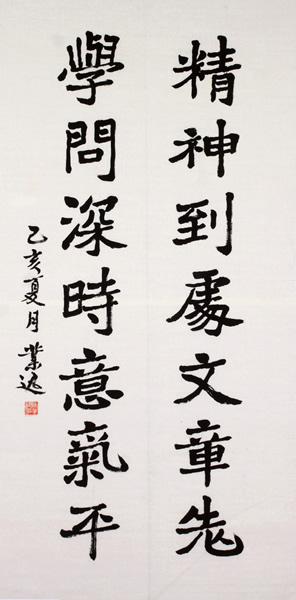 精神到處文章老
學問深時意氣平
乙亥夏月